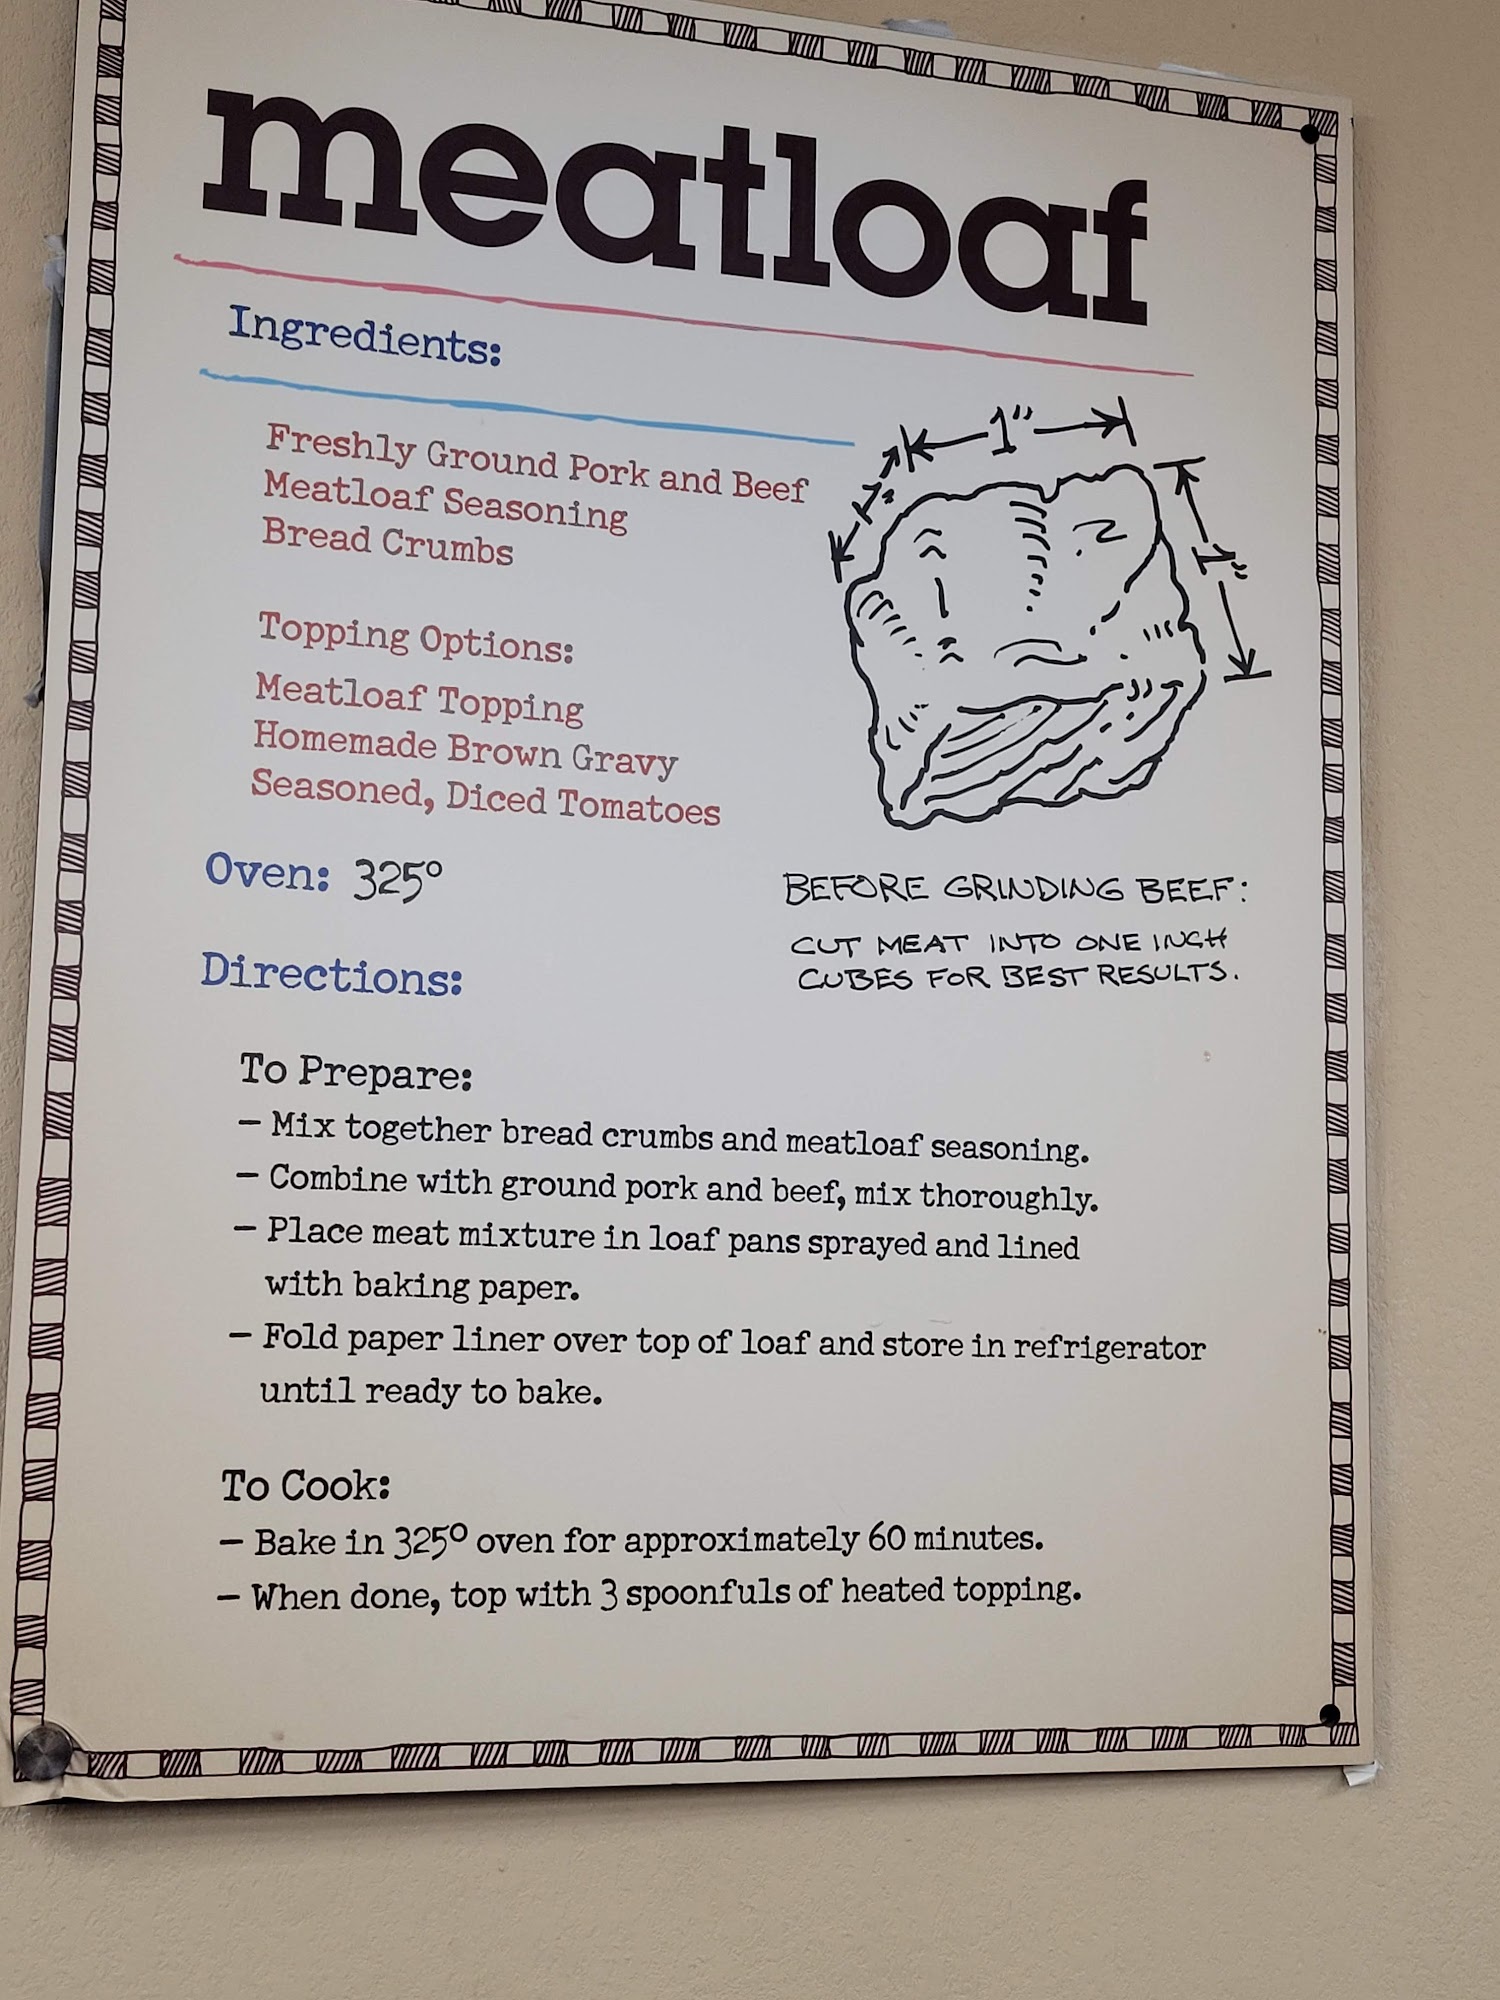 meatloaf
Ingredients:
Freshly Ground Pork and Beef
Meatloaf Seasoning
Bread Crumbs
Topping Options:
Meatloaf Topping
Homemade Brown Gravy
Seasoned, Diced Tomatoes
1"
1"
1"
Oven: 325°
BEFORE GRINDING BEEF:
CUT MEAT INTO ONE INCH
CUBES FOR BEST RESULTS.
Directions:
To Prepare:
– Mix together bread crumbs and meatloaf seasoning.
– Combine with ground pork and beef, mix thoroughly.
– Place meat mixture in loaf pans sprayed and lined
with baking paper.
– Fold paper liner over top of loaf and store in refrigerator
until ready to bake.
To Cook:
– Bake in 325° oven for approximately 60 minutes.
– When done, top with 3 spoonfuls of heated topping.